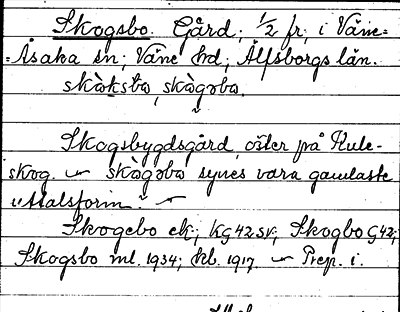 Skogsbo. Gård; 1/2 fr. i Väne-
-Åsaka sn; Väne hd; Älfsborgs län.
skàksbo, skàgəbo.
Skogsbygdsgård, öster på Hule-
skog. ~ skàgəbo synes vara gamlaste
uttalsform. ~
Skogebo ek; KG42sv; Skogbo G42;
Skogsbo ml. 1934; kb. 1917. ~ Prep. i.